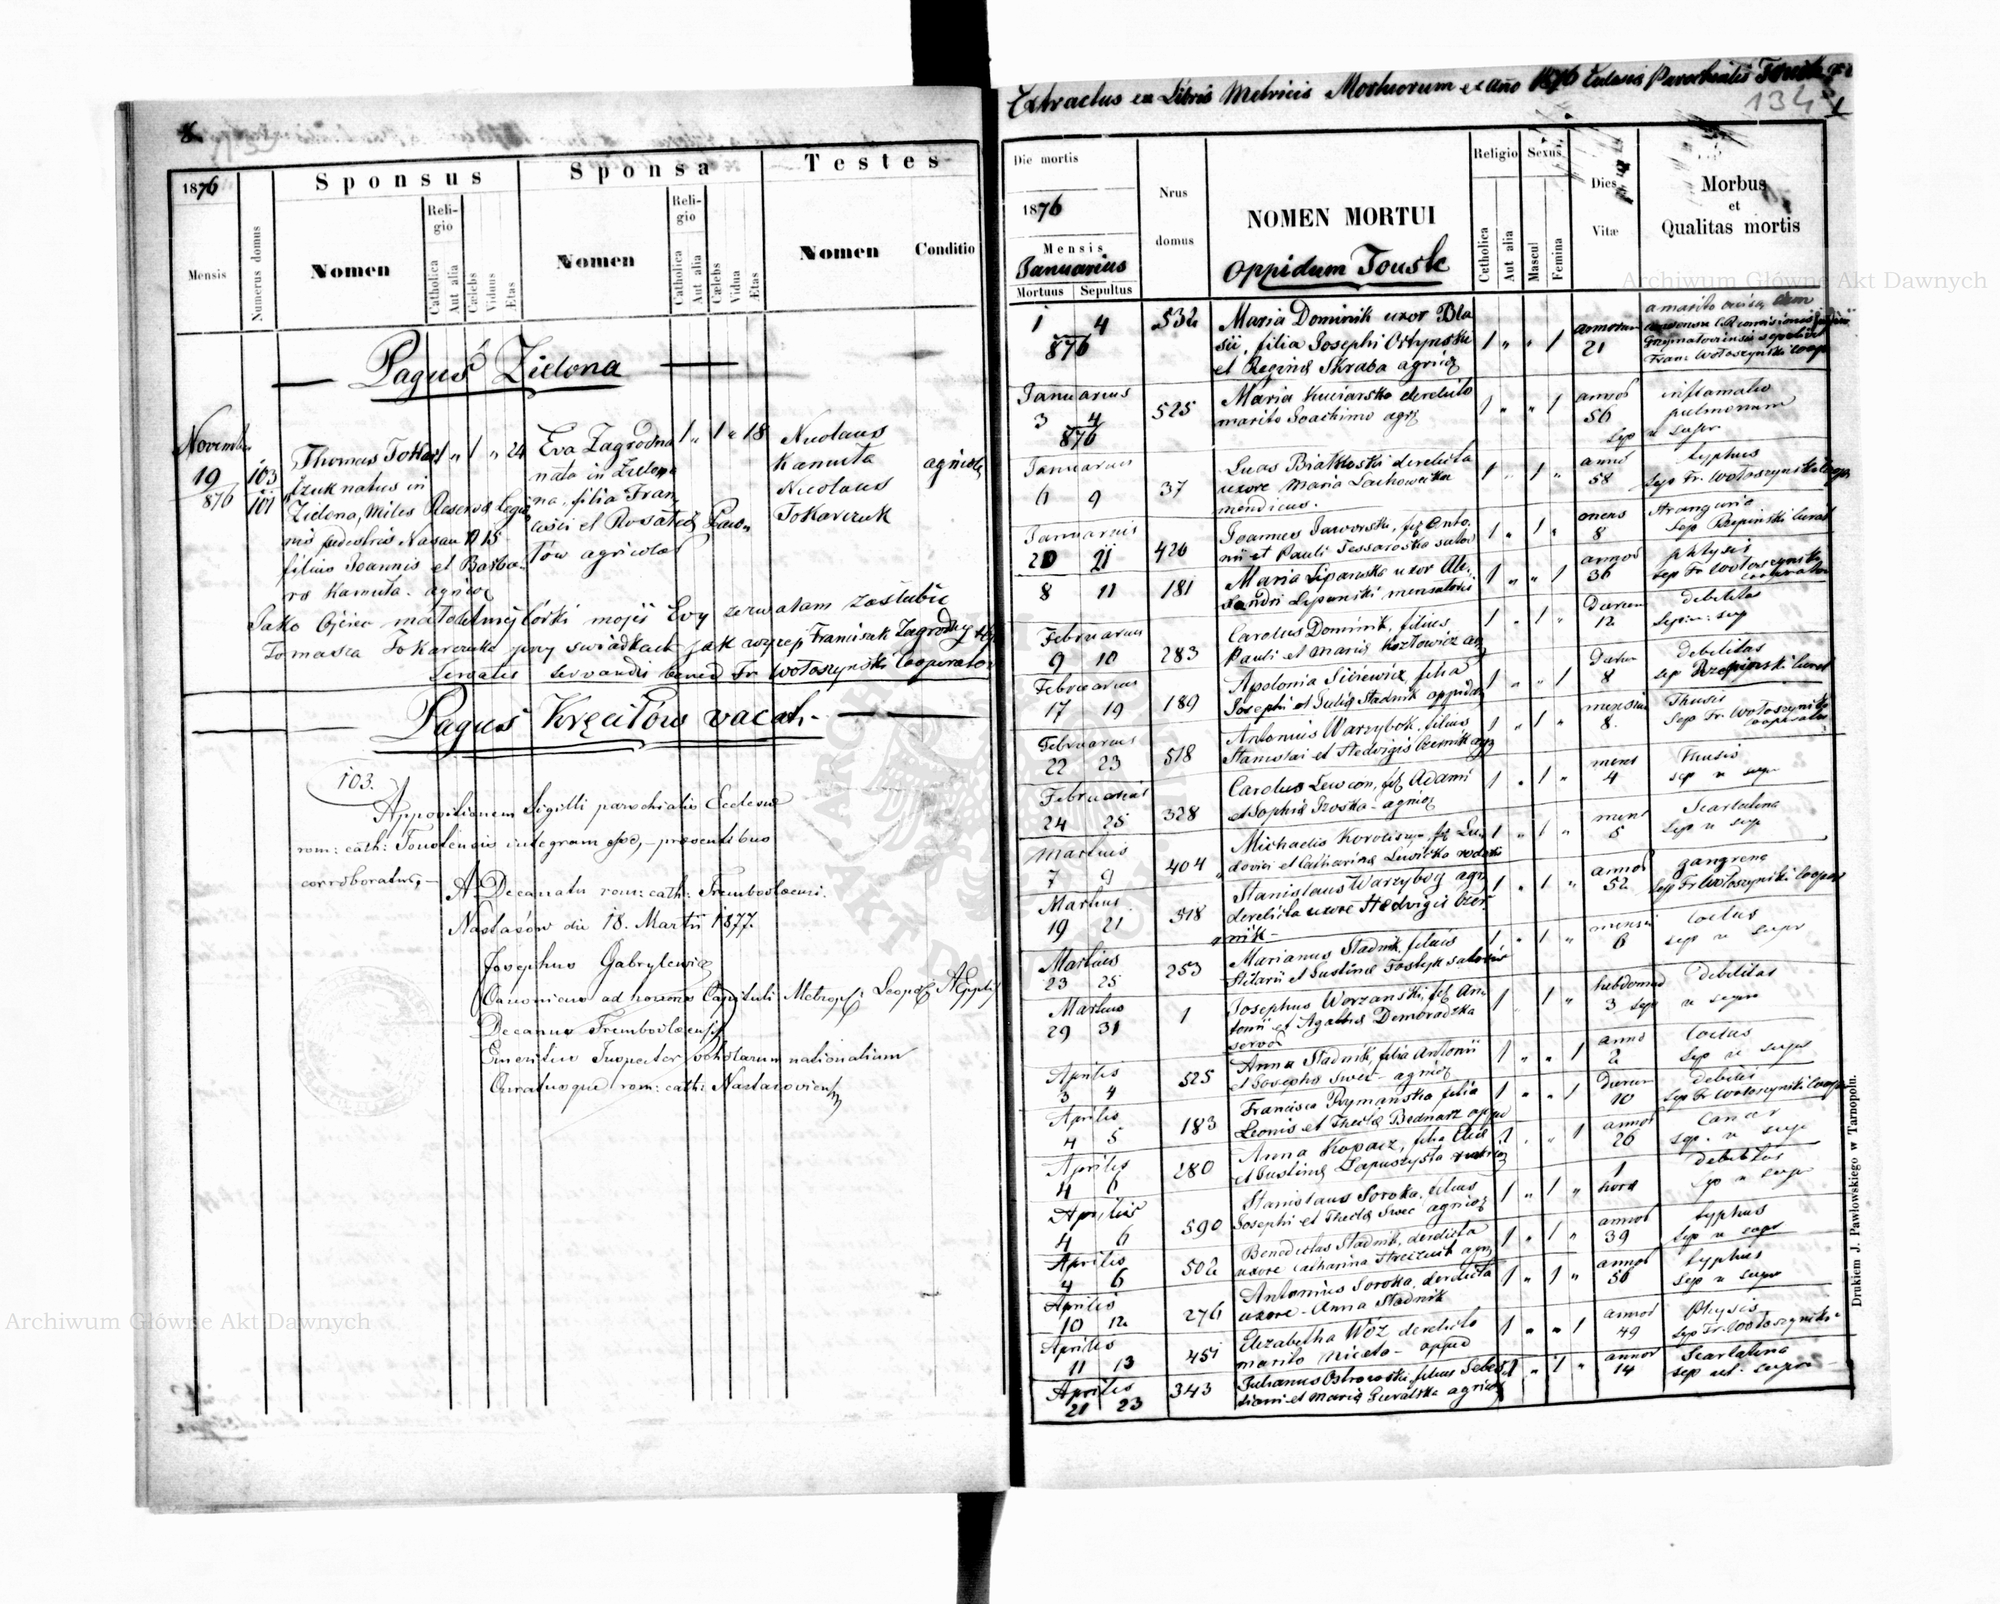 1876
Sponsus
Sponsa
Testes
Mensis
Numerus domus
Nomen
Religio
Catholica
Aut alia
Cælebs
Viduus
Ætas
Nomen
Religio
Catholica
Aut alia
Cælebs
Vidua
Ætas
Nomen
Conditio
Pagus Zielona
Novembr
19
876
103
101
Thomas Tokar
czuk natus in
Zielona, Miles Reserva legio
nis pedestris Nasau N 15
filius Joannis et Barba-
ra Kamuta - agricol
" 1 " 24
Eva Zagrodna
nata in Zielo
na, filia Fran
cisci et Rosalia
agricolae
1 " 1 " 18
Nicolaus
Kamuta
Nicolaus
Tokarczuk
agricolae
Jako Ojciec małoletniej Córki mojej Ewy zezwalam zaślubić
Tomasza Tokarczuka przy świadkach jak wyżej Franciszek Zagrodny
Servatis servandis bened Fr Wołoszyński Cooperator
Pagus Kręciłów vacat.
103.
Appositionem Sigilli parochialis Ecclesiae
rom: cath: Toustensis integram esse, praesentibus
corroboratur,
A Decanatu rom: cath: Trembowlaensi.
Nastasów die 18. Martii 1877.
Josephus Gabrylewicz
Canonicus ad honores Capituli Metropol: Leopol:
Decanus Trembowlaensis
Emeritus Inspector scholarum nationalium
Curatusque rom: cath: Nastasoviensis
Extractus ex Libris Metricis Mortuorum ex Año 1876 Eclesia Parochialis Touste
134
1
Die mortis
1876
Mensis
Januarius
Mortuus
Sepultus
Nrus domus
NOMEN MORTUI
Oppidum Touste
Religio
Catholica
Aut alia
Sexus
Mascul
Femina
Dies Vitæ
Morbus
et
Qualitas mortis
1 4
876
532
Maria Dominik uxor Bla
sii, filia Josephi Ortynski
et Regina Skraba agricol
1 " " 1
annorum
21
a marito
Fran: Wołoszyński Coop
Januarius
3 4
876
525
Maria Kuciarska derelicto
marito Joachimo agr
1 " " 1
annos
56
inflamatio
pulmonum
Sep u supr
Januarius
6 9
37
Lucas Białkoski derelicta
uxore Maria Lachowicka
mendicus.
1 " 1 "
anno
58
typhus
Sep Fr. Wołoszyński Coop
Januarius
20 21
426
Joannes Jaworski, fil Anto
nii et Pauli Tessarowska sutor
1 " 1 "
mens
8
Stranguria
Sep Rzepinski Curat
8 11
181
Maria Lipanska uxor Ale-
xandri Lipanski mensatoris
1 " " 1
annos
36
phtysis
sep Fr Wołoszynski
cooperator
Februarius
9 10
283
Carolus Dominik, filius
Pauli et Maria Kozłowicz agr
1 " 1 "
Dierum
12
debilitas
Sep u: sup
Februarius
17 19
189
Apolonia Sieniewicz, filia
Josephi et Julia Stadnik oppida
1 " " 1
Dierum
8
debilitas
sep Rzepinski Curat
Februarius
22 23
518
Antonius Warzybok, filius
Stanislai et Hedvigis Czernik agr
1 " 1 "
mensium
8.
Thusis
Sep Fr. Wołoszynski
Cooperator
Februarius
24 25
328
Carolus Lewcon, fil Adami
et Sophia Proska - agricol
1 " 1 "
mens
4
thusis
sep u supr
Martius
7 9
404
Michaelis Korolisz, fil Lu
dovici et Catharina Lewicka
1 " 1 "
mens
5
Scarlatina
Sep u sup
Martius
19 21
518
Stanislaus Warzybog agr
derelicta uxore Hedvigis Czer
nik -
1 " 1 "
annos
52
gangrena
Sep Fr Wołoszyński Cooper
Martius
23 25
253
Marianus Stadnik, filius
Hilarii et Justina Tostyk
1 " 1 "
mensi
6
Coctus
sep u supr
Martius
29 31
1
Josephus Worzanski, fil An
tonii et Agatha Demeradzka
servor
1 1 "
hebdomad
3
debilitas
sep u supr
Aprilis
3 4
525
Anna Stadnik, filia Antonii
et Josepha Swec - agricol
1 " " 1
anno
2
Coctus
sep u supr
Aprilis
4 5
183
Francisca Rymanska filia
Leonis et Thecla Bednarz oppid
1 " " 1
Dierum
10
debilit
Sep Fr Wołoszyński Cooper
Aprilis
4 6
280
Anna Kopacz, filia Elia
et Justina Łapuszysta
1 " " 1
annor
26
Cancer
sep. u supr
Aprilis
4 6
590
Stanislaus Soroka, filius
Josephi et Thecla Swec agricol
1 " 1 "
1
hora
debilitas
sep u supr
Aprilis
4 6
502
Benedictus Stadnik, derelicta
uxore Catharina Strelczuk agr
1 " 1 "
annos
39
typhus
Sep u supr
Aprilis
10 12
276
Antonius Soroka, derelicta
uxore - Anna Stadnik
1 " 1 "
annos
56
typhus
Sep u supr
Aprilis
11 13
451
Elizabetha Woz derelicto
marito Niceta - oppid
1 " " 1
annos
49
Phtysis
Sep Fr. Wołoszynski
Aprilis
21 23
343
Julianus Ostrowski, filius Sebas
tiani et Maria Guralska agricol
1 " 1 "
annor
14
Scarlatina
sep ut. supra
Drukiem J. Pawłowskiego w Tarnopolu.
Archiwum Główne Akt Dawnych
Archiwum Główne Akt Dawnych